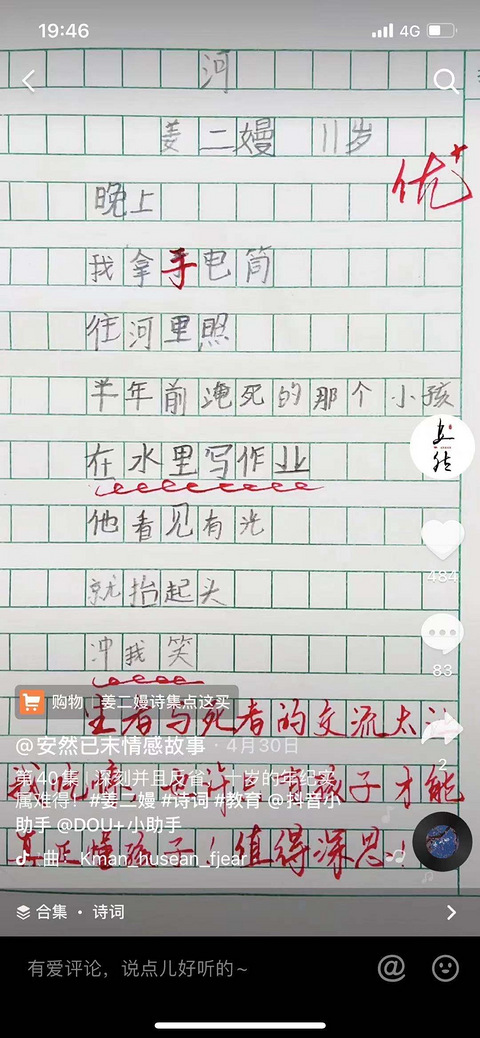 19:46
4G
河
姜二嫚 11岁
优+
晚上
我拿手电筒
往河里照
半年前淹死的那个小孩
在水里写作业
他看见有光
就抬起头
冲我笑
484
83
2
购物 姜二嫚诗集点这买
生者与死者的交流太
@安然已末情感故事 · 4月30日
我吃惊 也许只有孩子才能
第40集 | 深刻并且反省，十岁的年纪实
属难得！#姜二嫚 #诗词 #教育 @抖音小
助手 @DOU+小助手
真正懂孩子！值得深思！
曲 - Kman_husean_fjear
合集 · 诗词
有爱评论，说点儿好听的~